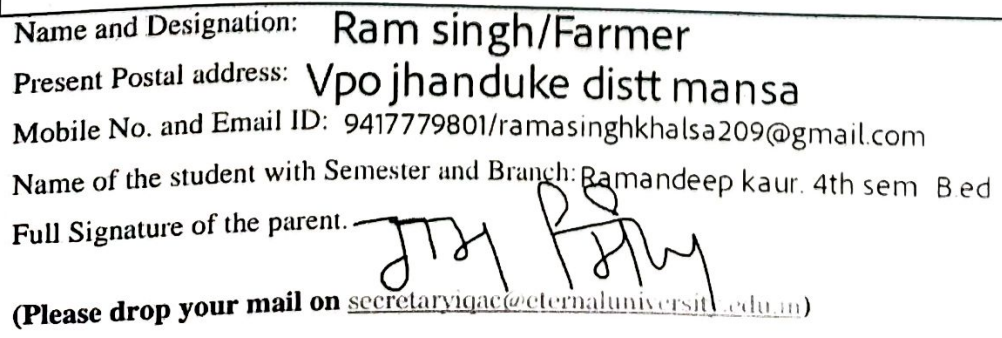 Name and Designation: Ram singh/Farmer
Present Postal address: Vpo jhanduke distt mansa
Mobile No. and Email ID: 9417779801/ramasinghkhalsa209@gmail.com
Name of the student with Semester and Branch: Ramandeep kaur. 4th sem B.ed
Full Signature of the parent. ਰਾਮ ਸਿੰਘ
(Please drop your mail on secretaryiqac@eternaluniversity.edu.in)